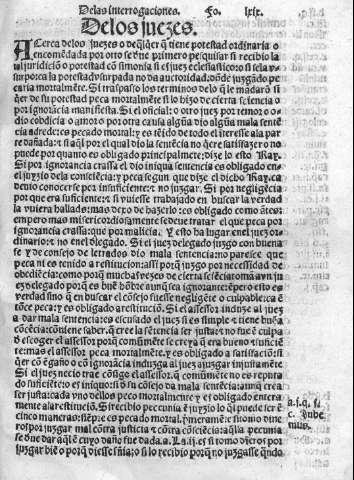 Delas interrogaciones. Fo. lxix.
Delos juezes.
ACerca delos juezes o de q̃lq̃er q̃ tiene potestad ordinaria o
encomẽdada por otro se deue primero pesquisar si recibio la
tal juridiciõ o potestad cõ simonia si es juez eclesiastico: o si la v
surpo ca la potestad vsurpada no da auctoridad: õde juzgãdo pe
caria mortalmẽte. Si traspaso los terminos delo q̃ le mãdarõ si
q̃er de su potestad peca mortalmẽte si lo hizo de cierta sciencia o
por ignorãcia manifiesta. Si el oficial: o otro juez por temor o o
dio cobdicia o amor: o por otra causa alguna dio algũa mala sente
cia adrede: es pecado mortal: y es tẽido de todo el interesse ala par
te dañada: si aql por el qual dio la sentẽcia no q̃ere satisfazer o no
puede por quanto es obligado principalmẽte: dize lo esto Ray.
Si por ignorãcia crassa el dio iniqua sentẽcia es obligado en
el juyzio dela consciẽcia: y peca segun que dize el dicho Ray. ca
deuio conoscerse por insuficiente: y no juzgar. Si por negligẽcia
por que era suficiente: y si vuiesse trabajado en buscar la verdad
la vuiera hallado: mas dexo de hazerlo: es obligado como de su
empero mas misericordiosamente se deue tratar el que peca por
ignorancia crassa: que por malicia. Y esto ha lugar en el juez or
dinario: y no en el delegado. Si el juez delegado juzgo con buena
fe y de consejo de letrados dio mala sentencia: no paresce que
peca ni es tenido a restitucion: assi porq̃ juzgo por necessidad de
obediẽcia: como porq̃ muchas vezes de cierta sciẽcia toma aun ju
ez delegado porq̃ es buẽ hõbre aunq̃ sea ignorante: ẽpero esto es
verdad sino q̃ en buscar el cõsejo fuesse negligẽte o culpable: ca ẽ
tõce peca: y es obligado a restituciõ. Si el assessor induze al juez
a dar mala sentencia: es escusado el juez si es simple: e tiene buẽa
cõcẽcia: cõuiene saber. q̃ cree la sẽtencia ser justa: y no fue ẽ culpa
õ escoger el assessor porq̃ comũmẽte se creya q̃ era bueno y suficiẽ
te: mas el assessor peca mortalmẽte. y es obligado a satisfaciõ. si
q̃er cõ ẽgaño o cõ ignorãcia induzga al juez a juzgar injustamẽte
Si el juez necio trae cõsigo el assessor. q̃ comũmẽte no es reputa
do suficiẽte: o es iniquo: si õ su cõsejo da mala sentẽcia: aunq̃ crea
ser justa: cada vno dellos peca mortalmẽte y es obligado entera
mente ala restituciõ. Si recibio pecunia ẽ juyzio lo q̃l puede ser ẽ
cinco maneras: siẽpre es pecado mortal. primeramẽte: si tomo dine
ros por juzgar mal cõtra justicia y cõtra cõsciẽcia: aq̃lla pecunia
se deue dar a q̃l en cuyo daño fue dada. La .ij. es si tomo dineros por
juzgar biẽ o porq̃ diesse sñia: o si lo recibio porq̃ no juzgasse q̃ndo
a.j.q. si
c. Jube
mus.